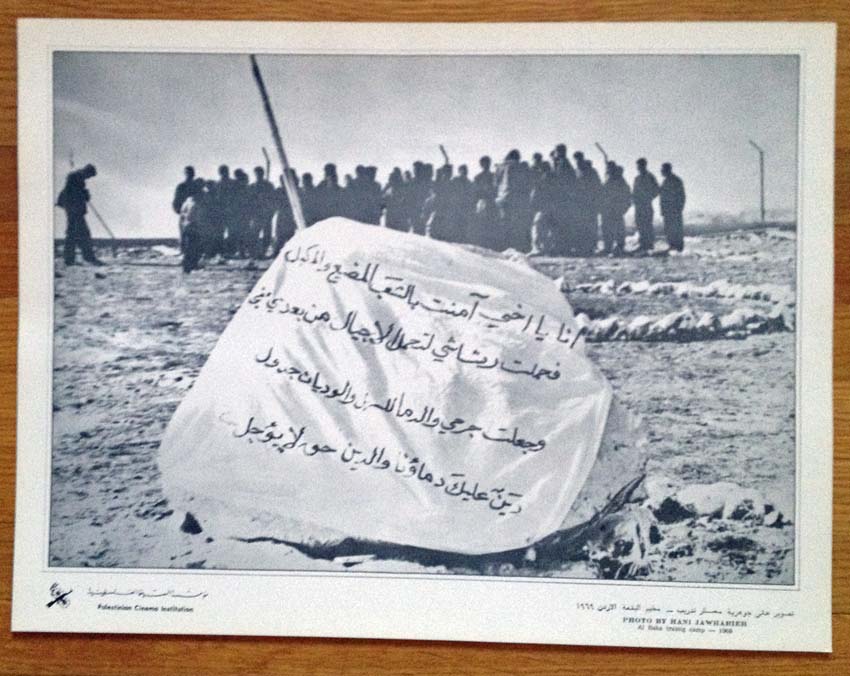 انا يا اخي آمنت بالشعب المضيع والمكبل
فحملت رشاشي لتحمل الاجيال من بعدي
وجعلت جرحي والدما للسهل والوديان جدول
دين عليك دماؤنا والدين حق لا يؤجل
مؤسسة السينما الفلسطينية
Palestinian Cinema Institution
تصوير هاني جوهرية معسكر تدريب — مخيم البقعة الاردن ١٩٦٩
PHOTO BY HANI JAWHARIEH
Al Baka traing camp — 1969